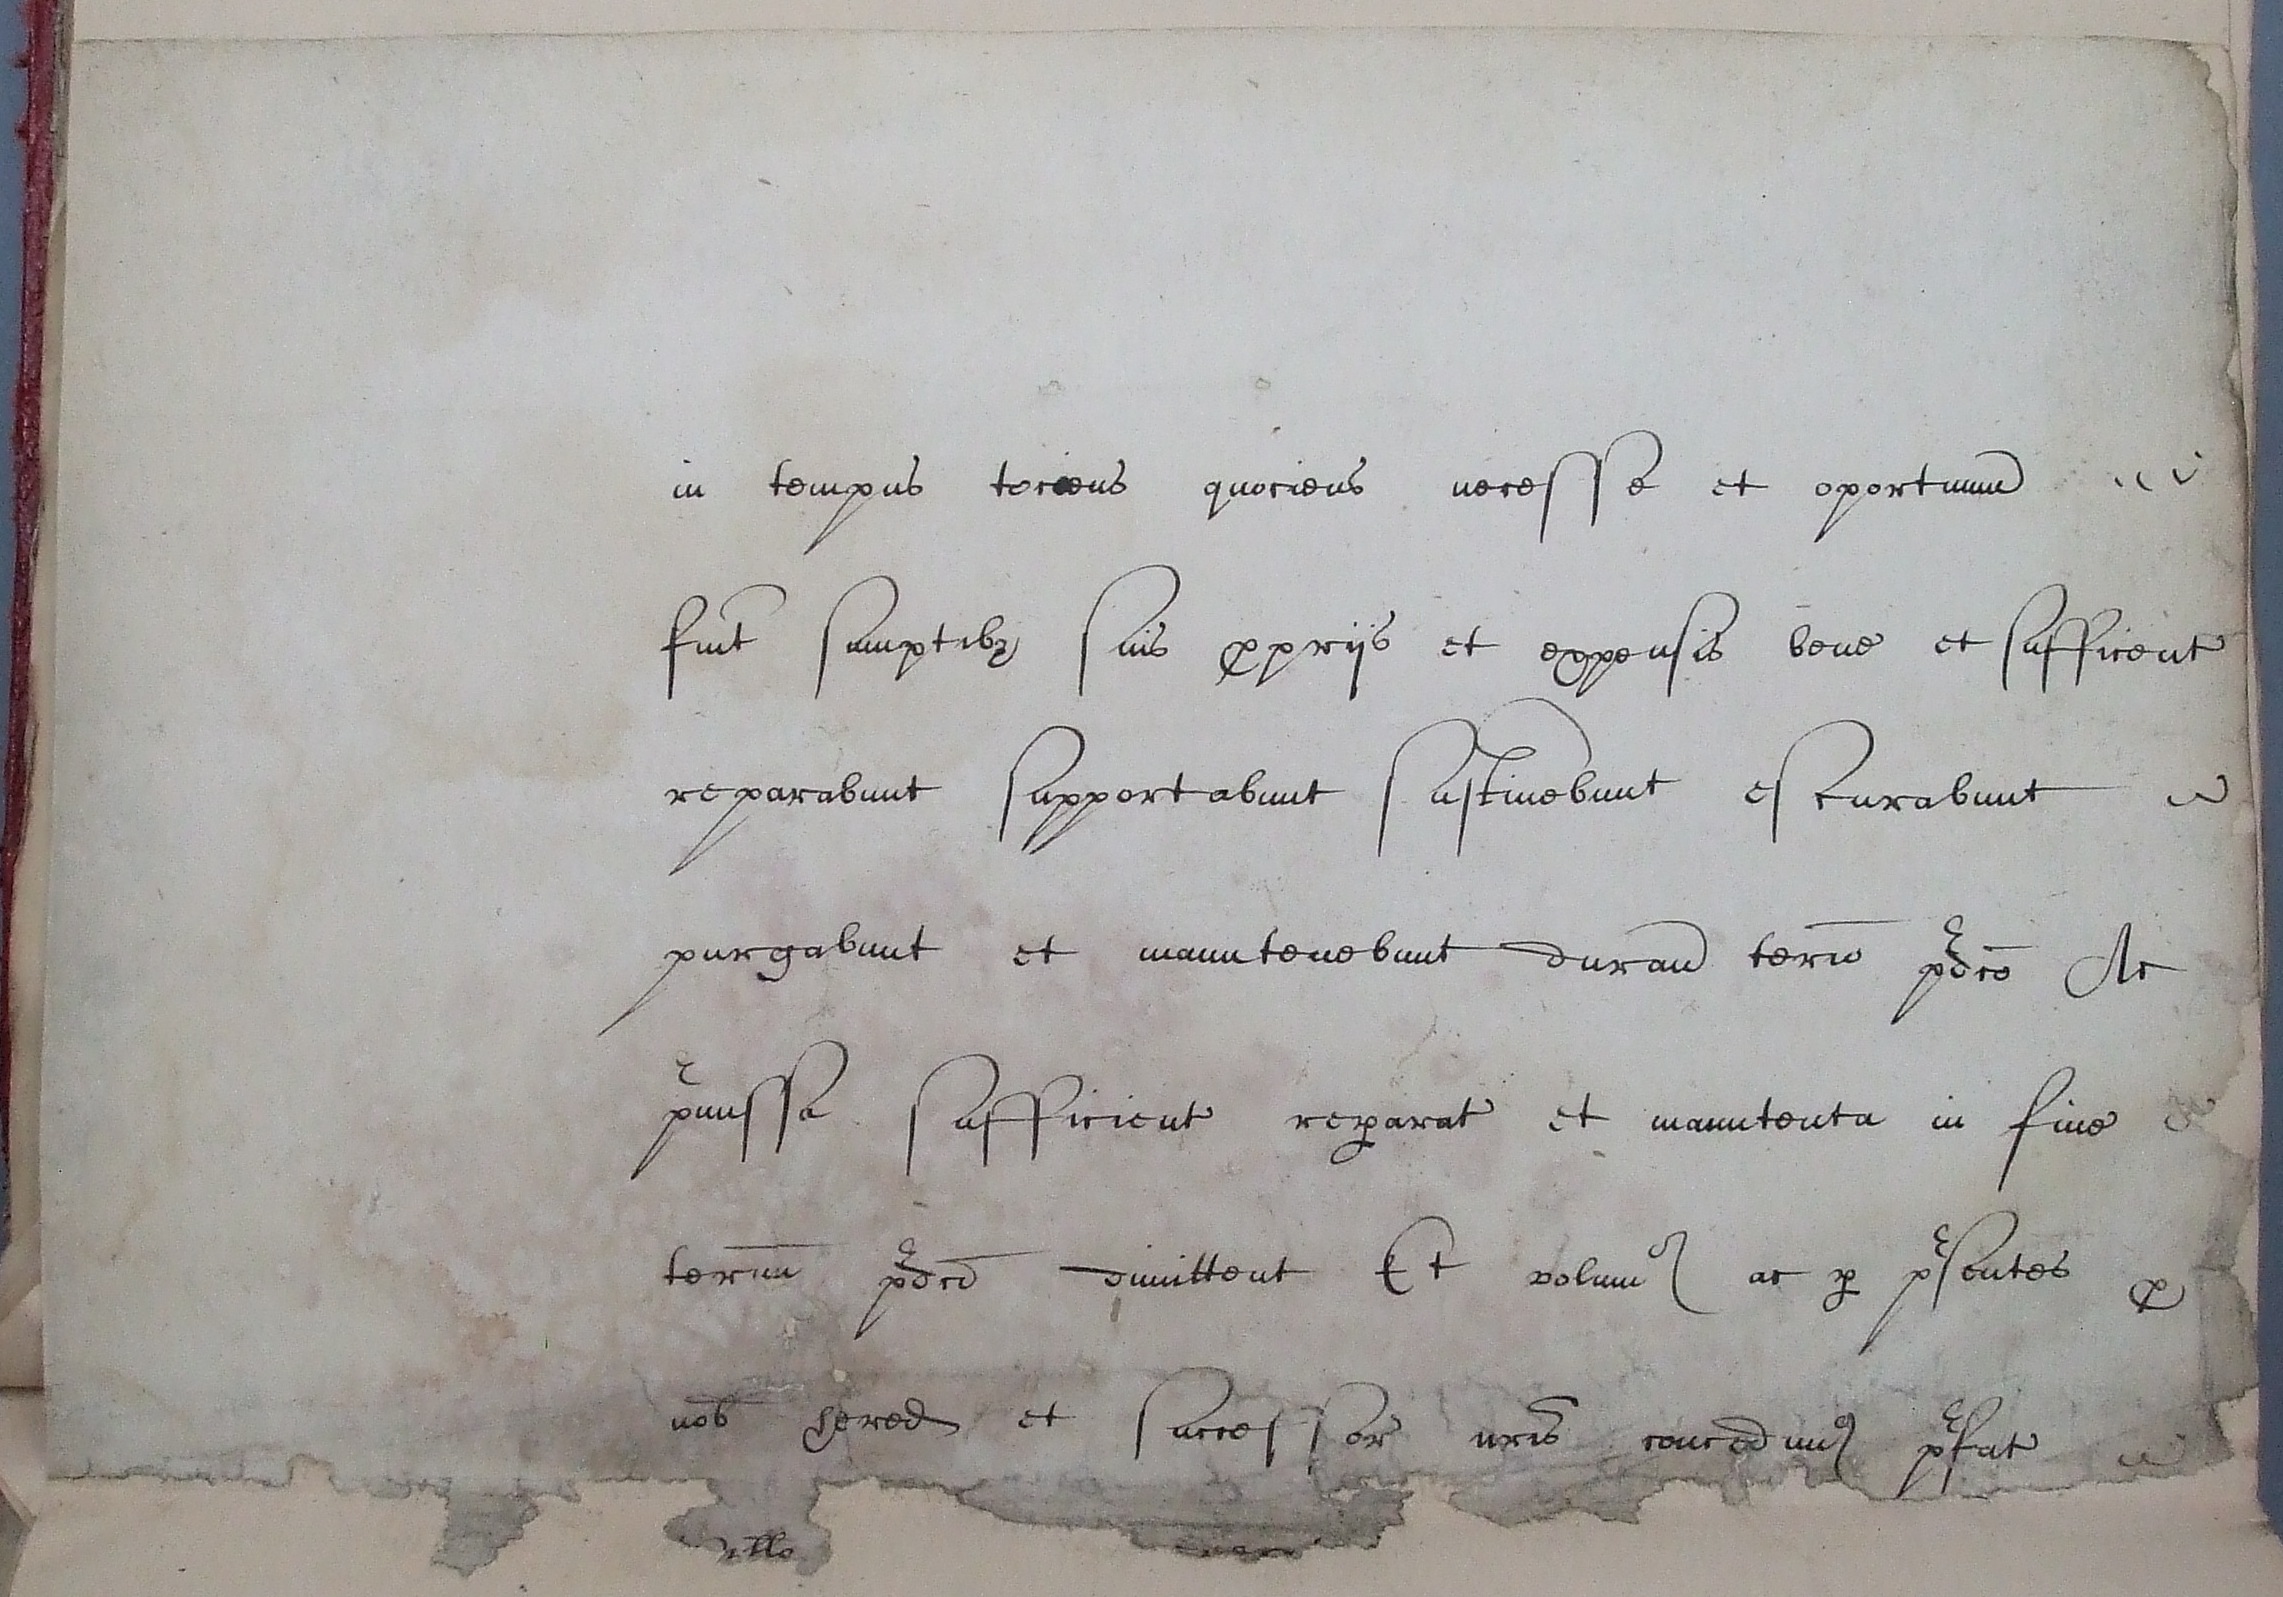 in tempus tociens quociens necesse et oportunu͠
fu͠it sumptibꝫ suis ꝓprijs et expensis bene et sufficient
reparabunt supportabunt sustinebunt escurabunt
purgabunt et manutenebunt duran͠ termi͠o p͛dco͠ Ac
p͛missa sufficient reꝑat et manutenta in fine
termi͠ p͛dci͠ dimittent Et volumꝰ ac ꝑ p͛sentes ꝓ
nob͠ hered et successor nr͠is concedimꝰ p͛fat